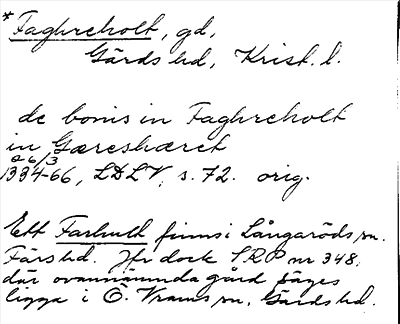 *Faghreholt, gd,
Gärds hd, Krist. l.
de bonis in Faghreholt
in Gæreshæret
26/3
1334-66, LDLV, s. 72. orig.
Ett Farhult finns i Långaröds sn.
Färs hd. Jfr dock SRP nr 348,
där ovannämnda gård säges
ligga i Ö. Vrams sn, Gärds hd.